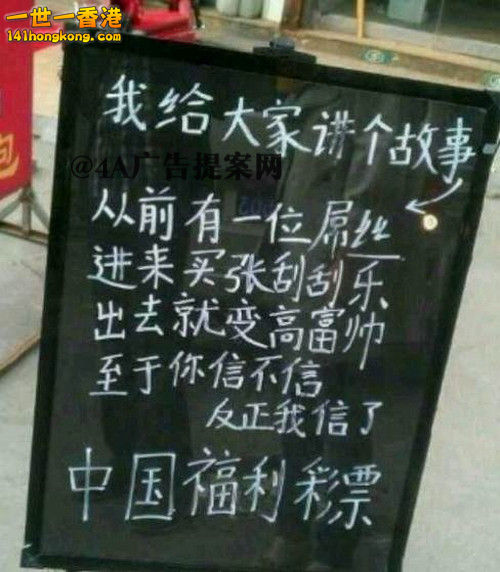 一世一香港
141hongkong.com
我给大家讲个故事
@4A广告提案网
从前有一位屌丝
进来买张刮刮乐
出去就变高富帅
至于你信不信
反正我信了
中国福利彩票